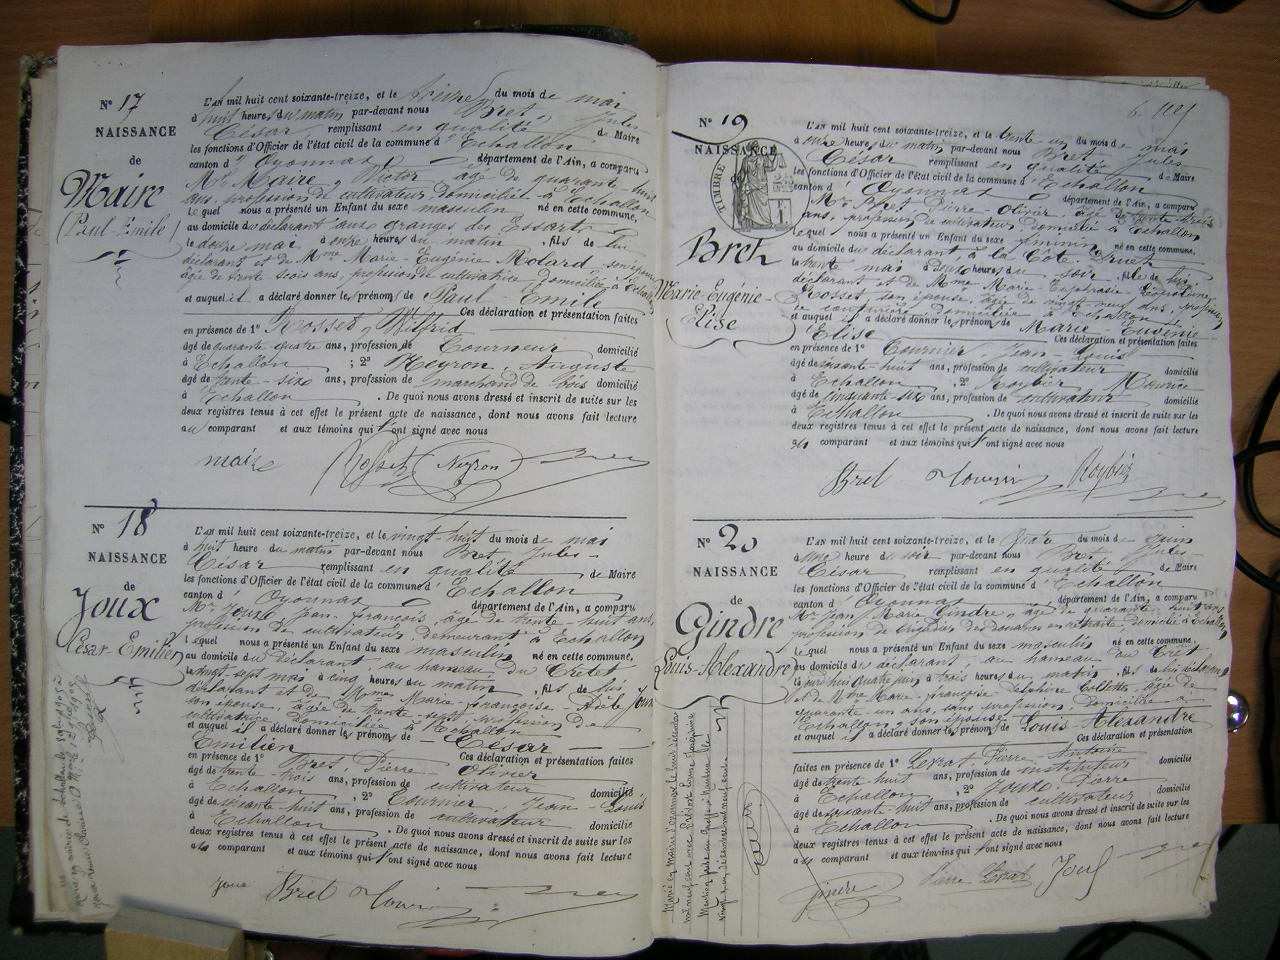 N° 17
NAISSANCE
de
Maire
Paul-Emile
L'AN mil huit cent soixante-treize, et le treize du mois de mai
à huit heures du matin par-devant nous Bret, Jules-
César, remplissant en qualité de Maire
les fonctions d'Officier de l'état civil de la commune d'Echallon
canton d'Oyonnax département de l'Ain, a comparu
Mr Maire, Victor âgé de quarante-huit
ans, profession de cultivateur domicilié à Echallon
lequel nous a présenté un Enfant du sexe masculin né en cette commune,
au domicile du déclarant aux granges des Essarts
le douze mai à onze heures du matin, fils de lui
déclarant et de Mme Marie-Eugénie Molard son épouse
âgée de trente trois ans, profession de cultivatrice domiciliée à Echallon
et auquel il a déclaré donner les prénoms de Paul-Emile
Ces déclaration et présentation faites
en présence de 1° Rosset, Wilfrid
âgé de quarante quatre ans, profession de Tourneur domicilié
à Echallon, 2° Neyron, Auguste
âgé de trente-six ans, profession de marchand de bois domicilié
à Echallon. De quoi nous avons dressé et inscrit de suite sur les
deux registres tenus à cet effet le présent acte de naissance, dont nous avons fait lecture
au comparant et aux témoins qui ont signé avec nous
maire Rosset Neyron Bret
N° 18
NAISSANCE
de
Joux
César-Emilien
L'AN mil huit cent soixante-treize, et le vingt-huit du mois de mai
à huit heure du matin par-devant nous Bret, Jules-
César remplissant en qualité de Maire
les fonctions d'Officier de l'état civil de la commune d'Echallon
canton d'Oyonnax département de l'Ain, a comparu
Mr Joux, Jean-François, âgé de trente-huit ans,
profession de cultivateur, demeurant à Echallon
lequel nous a présenté un Enfant du sexe masculin né en cette commune,
au domicile du déclarant, au hameau du Crétet
le vingt sept mai à cinq heures du matin, fils de lui
déclarant et de Mme Marie-Françoise-Adèle Joux
son épouse, âgée de trente sept profession de
cultivatrice domiciliée à Echallon
et auquel il a déclaré donner les prénoms de César-
Emilien Ces déclaration et présentation faites
en présence de 1° Bret Pierre-Olivier
âgé de trente-trois ans, profession de cultivateur domicilié
à Echallon, 2° Tournier, Jean-Louis
âgé de soixante-huit ans, profession de cultivateur domicilié
à Echallon. De quoi nous avons dressé et inscrit de suite sur les
deux registres tenus à cet effet le présent acte de naissance, dont nous avons fait lecture
au comparant et aux témoins qui ont signé avec nous
Joux Bret Tournier Bret
N° 19
NAISSANCE
TIMBRE
de
Bret
Marie-Eugénie-
Elise
L'AN mil huit cent soixante-treize, et le trente-un du mois de mai
à onze heure du matin par-devant nous Bret Jules-
César remplissant en qualité de Maire
les fonctions d'Officier de l'état civil de la commune d'Echallon
canton d'Oyonnax département de l'Ain, a comparu
Mr Bret Pierre Olivier, âgé de trente trois
ans, profession de cultivateur domicilié à Echallon
lequel nous a présenté un Enfant du sexe féminin né en cette commune,
au domicile du déclarant, à la Côte
le trente mai à heures du soir, fille de lui
déclarant et de Mme Marie-
Rosset, son épouse, âgée de vingt neuf ans, profession
de domiciliée à Echallon
et auquel il a déclaré donner les prénoms de Marie Eugénie
Elise Ces déclaration et présentation faites
en présence de 1° Tournier Jean-Louis
âgé de soixante-huit ans, profession de cultivateur domicilié
à Echallon, 2° Roybier Maurice
âgé de cinquante-six ans, profession de cultivateur domicilié
à Echallon. De quoi nous avons dressé et inscrit de suite sur les
deux registres tenus à cet effet le présent acte de naissance, dont nous avons fait lecture
au comparant et aux témoins qui ont signé avec nous
Bret Tournier Roybier
N° 20
NAISSANCE
de
Gindre
Louis-Alexandre
L'AN mil huit cent soixante-treize, et le quatre du mois de juin
à une heure du soir par-devant nous Bret Jules-
César remplissant en qualité de Maire
les fonctions d'Officier de l'état civil de la commune d'Echallon
canton d'Oyonnax département de l'Ain, a comparu
Mr Jean Marie Gindre, âgé de quarante huit ans,
profession de brigadier des douanes en retraite domicilié à Echallon
lequel nous a présenté un Enfant du sexe masculin né en cette commune,
au domicile du déclarant, au hameau du Crétet
le jourd'hui quatre juin à trois heures du matin, fils de lui déclarant
et de Mme Marie-Françoise Delphine Collettaz, âgée de
quarante un ans, sans profession, domiciliée à
Echallon, son épouse
et auquel il a déclaré donner les prénoms de Louis-Alexandre
Ces déclaration et présentation
faites en présence de 1° Pierre Antoine
âgé de trente huit ans, profession de instituteur domicilié
à Echallon, 2° Joux, Pierre
âgé de soixante ans, profession de cultivateur domicilié
à Echallon. De quoi nous avons dressé et inscrit de suite sur les
deux registres tenus à cet effet le présent acte de naissance, dont nous avons fait lecture
au comparant et aux témoins qui ont signé avec nous
Gindre Joux